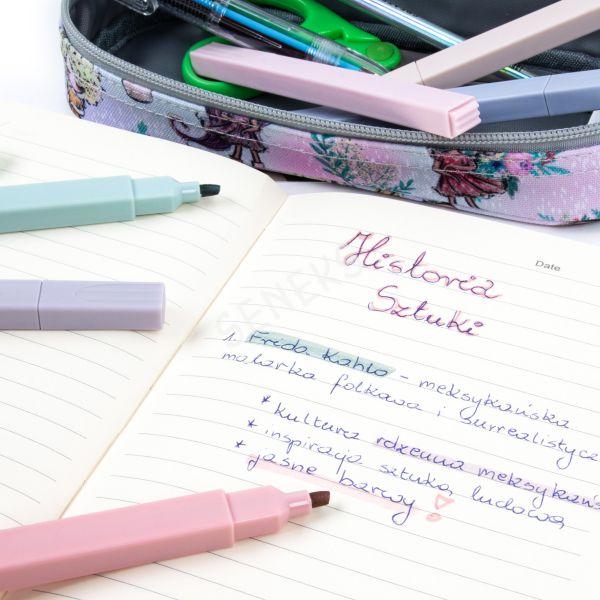 Date
Historia
Sztuki
1. Frida Kahlo - meksykańska
malarka folkowa i surrealistycz
* kultura rdzenna meksykańs
* inspiracja sztuką ludową
* jasne barwy!